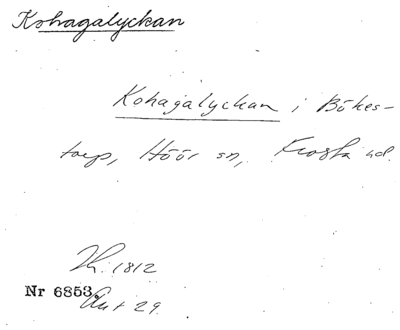 Kohagalyckan
Kohagalyckan i Bökes-
torp, Höör sn, Frosta hd.
Th. 1812
Nr 6853
Akt 29.